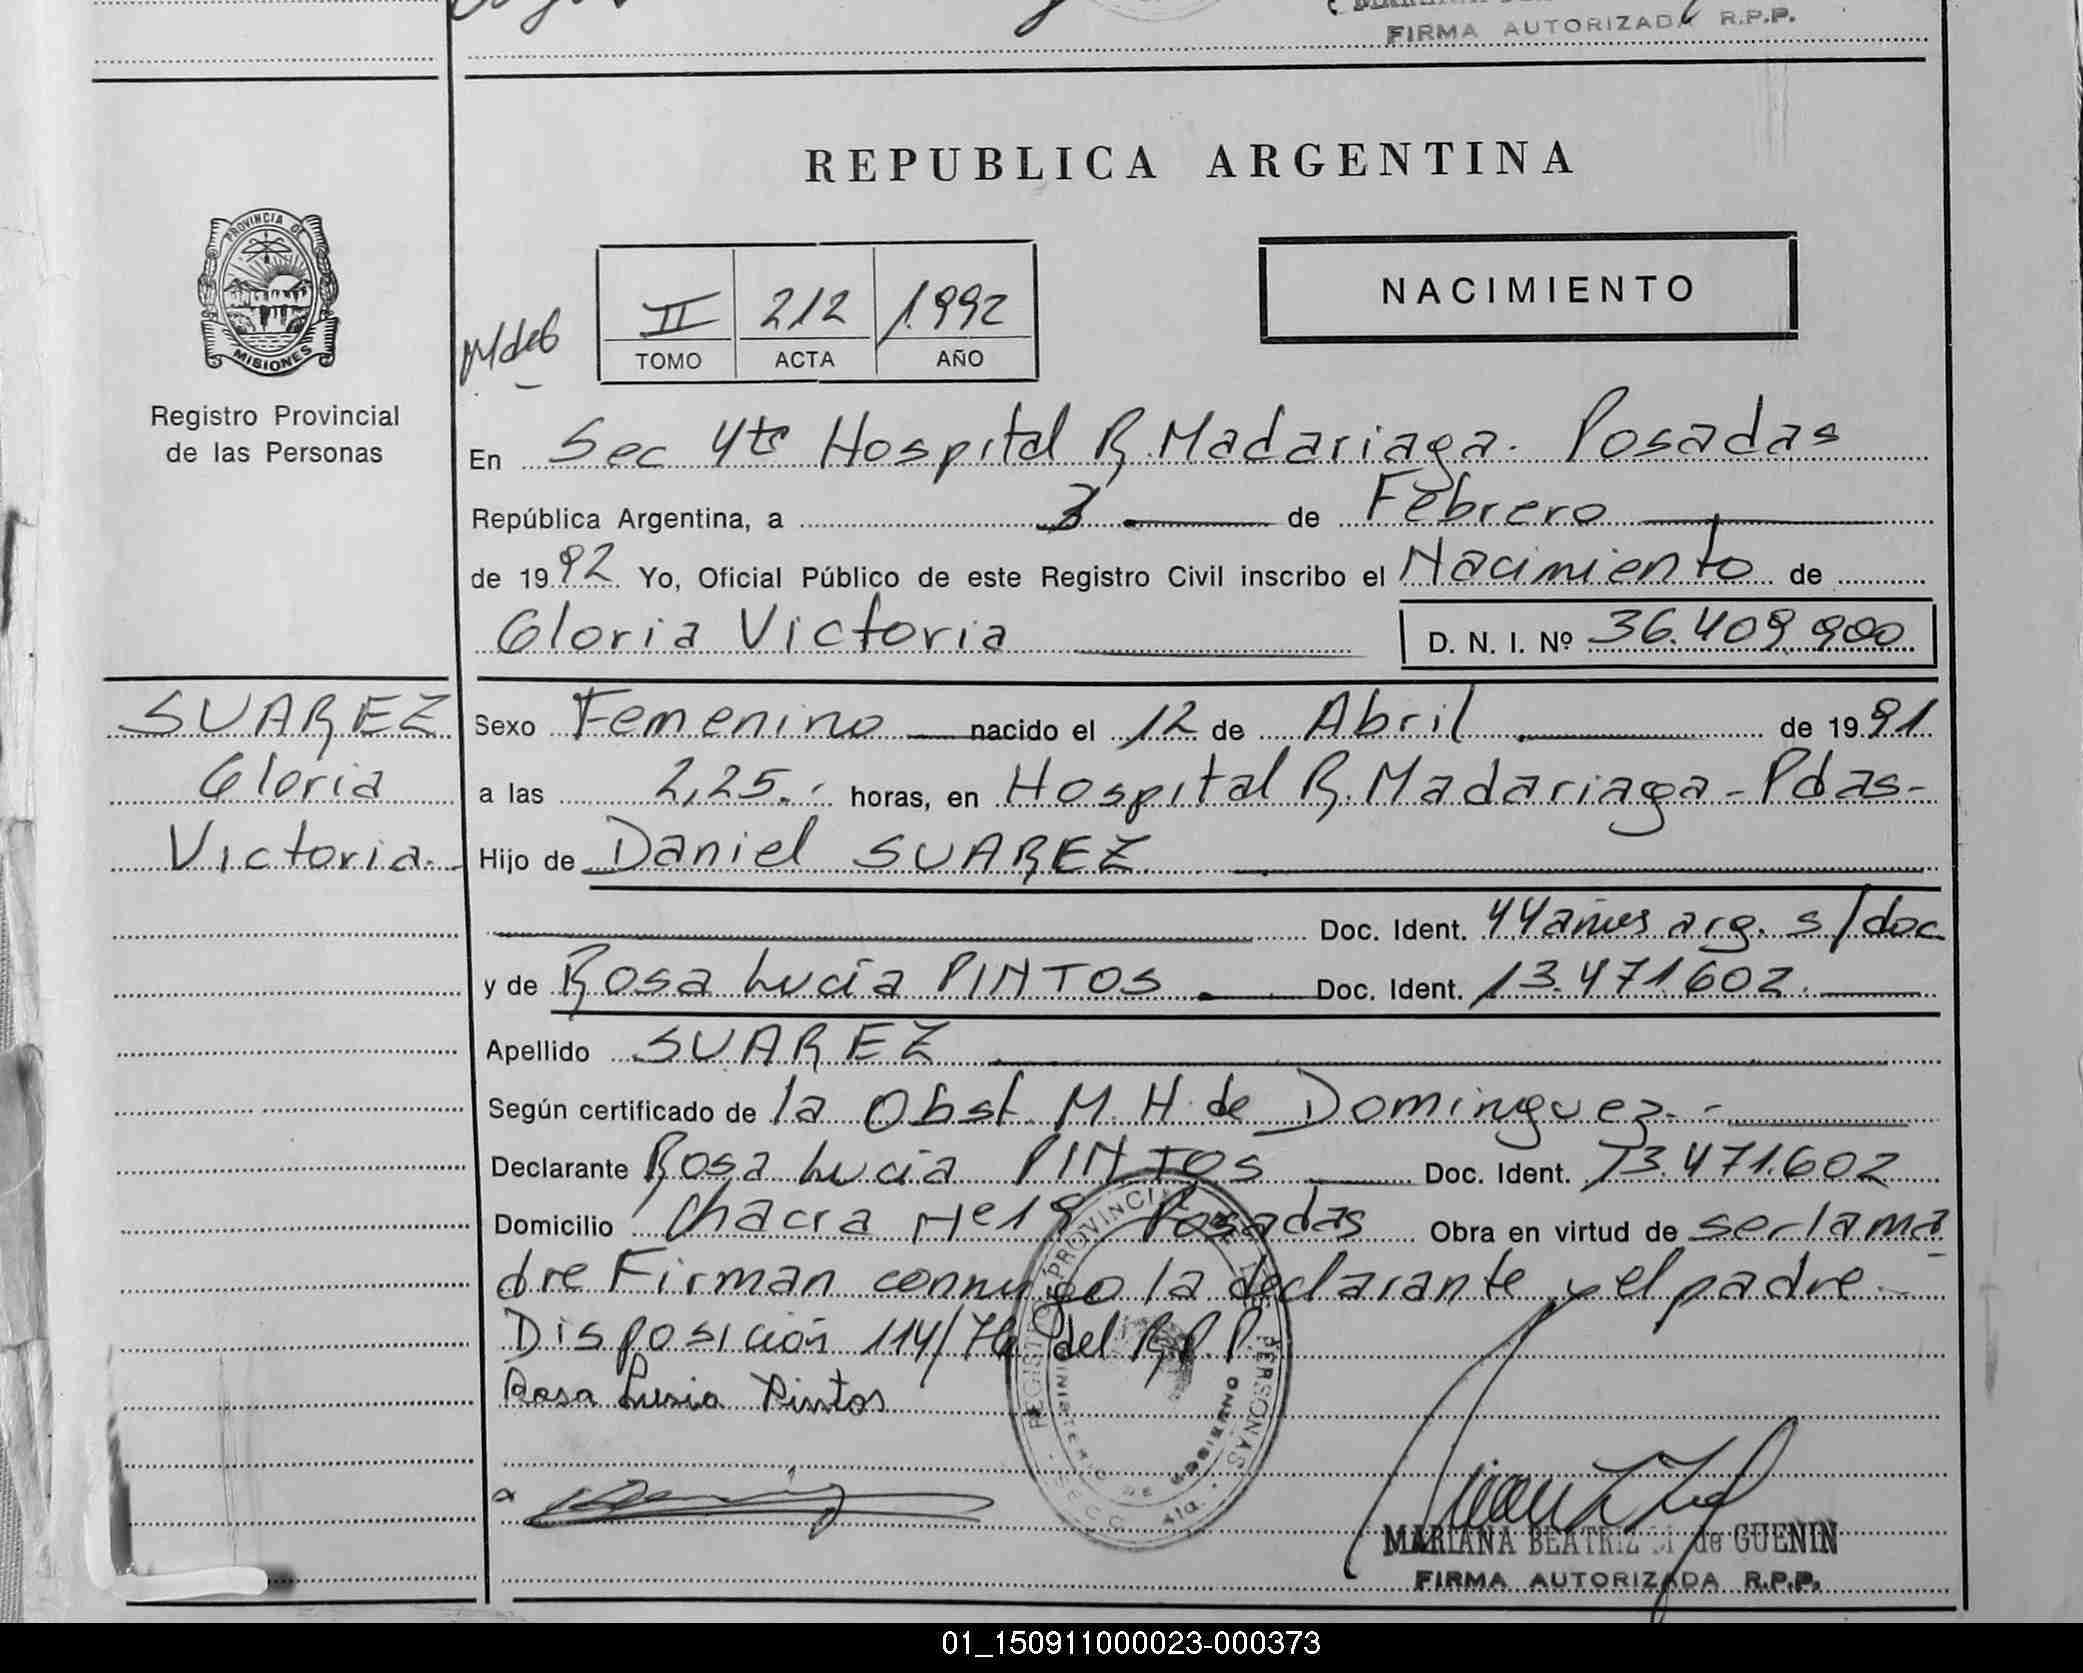 FIRMA AUTORIZADA R.P.P.
REPUBLICA ARGENTINA
PROVINCIA DE
MISIONES
Registro Provincial
de las Personas
II 212 1992
TOMO ACTA AÑO
NACIMIENTO
En Sec 4ta Hospital R. Madariaga. Posadas
República Argentina, a 3 de Febrero
de 1992 Yo, Oficial Público de este Registro Civil inscribo el Nacimiento de
Gloria Victoria D. N. I. Nº 36.409.900
SUAREZ
Gloria
Victoria.
Sexo Femenino nacido el 12 de Abril de 1991
a las 2,25. horas, en Hospital R. Madariaga - Pdas-
Hijo de Daniel SUAREZ
Doc. Ident. 44 años arg. s/doc
y de Rosa Lucía PINTOS Doc. Ident. 13.471.602.
Apellido SUAREZ
Según certificado de la Obst. M. H. de Dominguez.-
Declarante Rosa Lucía PINTOS Doc. Ident. 13.471.602
Domicilio Chacra Nº 19 Posadas Obra en virtud de ser la ma
dre Firman conmigo la declarante y el padre.-
Disposición 114/76 del R.P.P.
Rosa Lusia Pintos
REGISTRO PROVINCIAL DE LAS PERSONAS
MINISTERIO DE GOBIERNO
SECC. 4ta.
MARIANA BEATRIZ de GUENIN
FIRMA AUTORIZADA R.P.P.
01_150911000023-000373